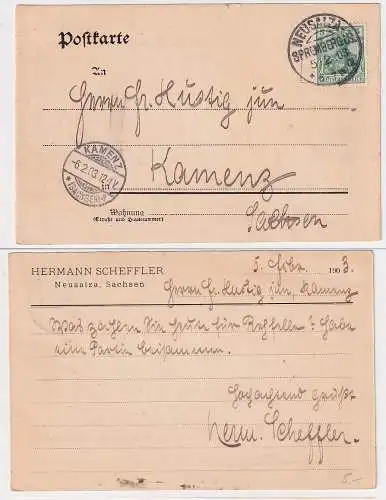 Postkarte
NEUSALZA-
SPREMBERG
5. 2. 03
An
Herrn Fr. Hustig jun
Kamenz
KAMENZ
-6.2.03. 12-1 V.
* (SACHSEN) *
Wohnung
(Straße und Hausnummer)
Sachsen
HERMANN SCHEFFLER
Neusalza, Sachsen
5. Febr. 1903.
Herrn Fr. Hustig jun, Kamenz
Was zahlen Sie heute für Rehfelle? Habe
eine Partie beisammen.
Hochachtend grüßt
Herm. Scheffler.
5.-